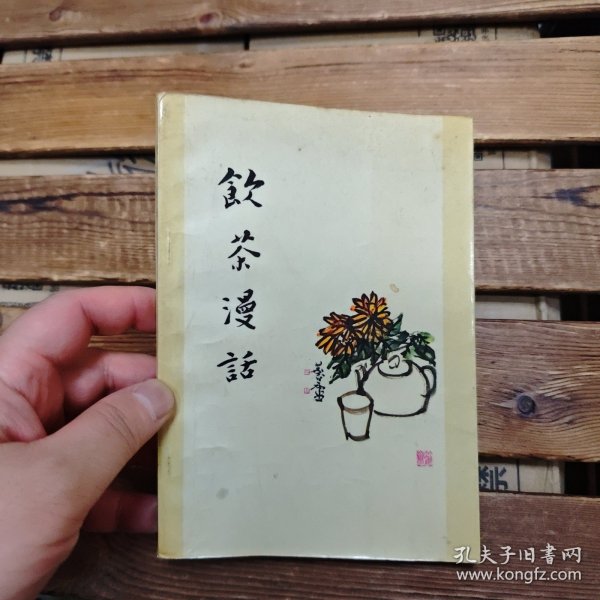 飲茶漫話
孔夫子旧書网
www.kongfz.com